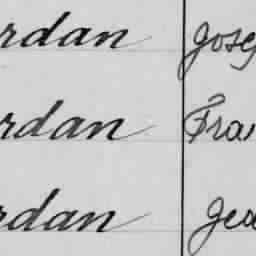 rdan Jose
rdan Fra
rdan Jea